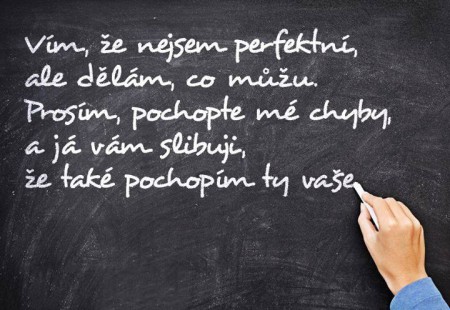 Vím, že nejsem perfektní,
ale dělám, co můžu.
Prosím, pochopte mé chyby,
a já vám slibuji,
že také pochopím ty vaše